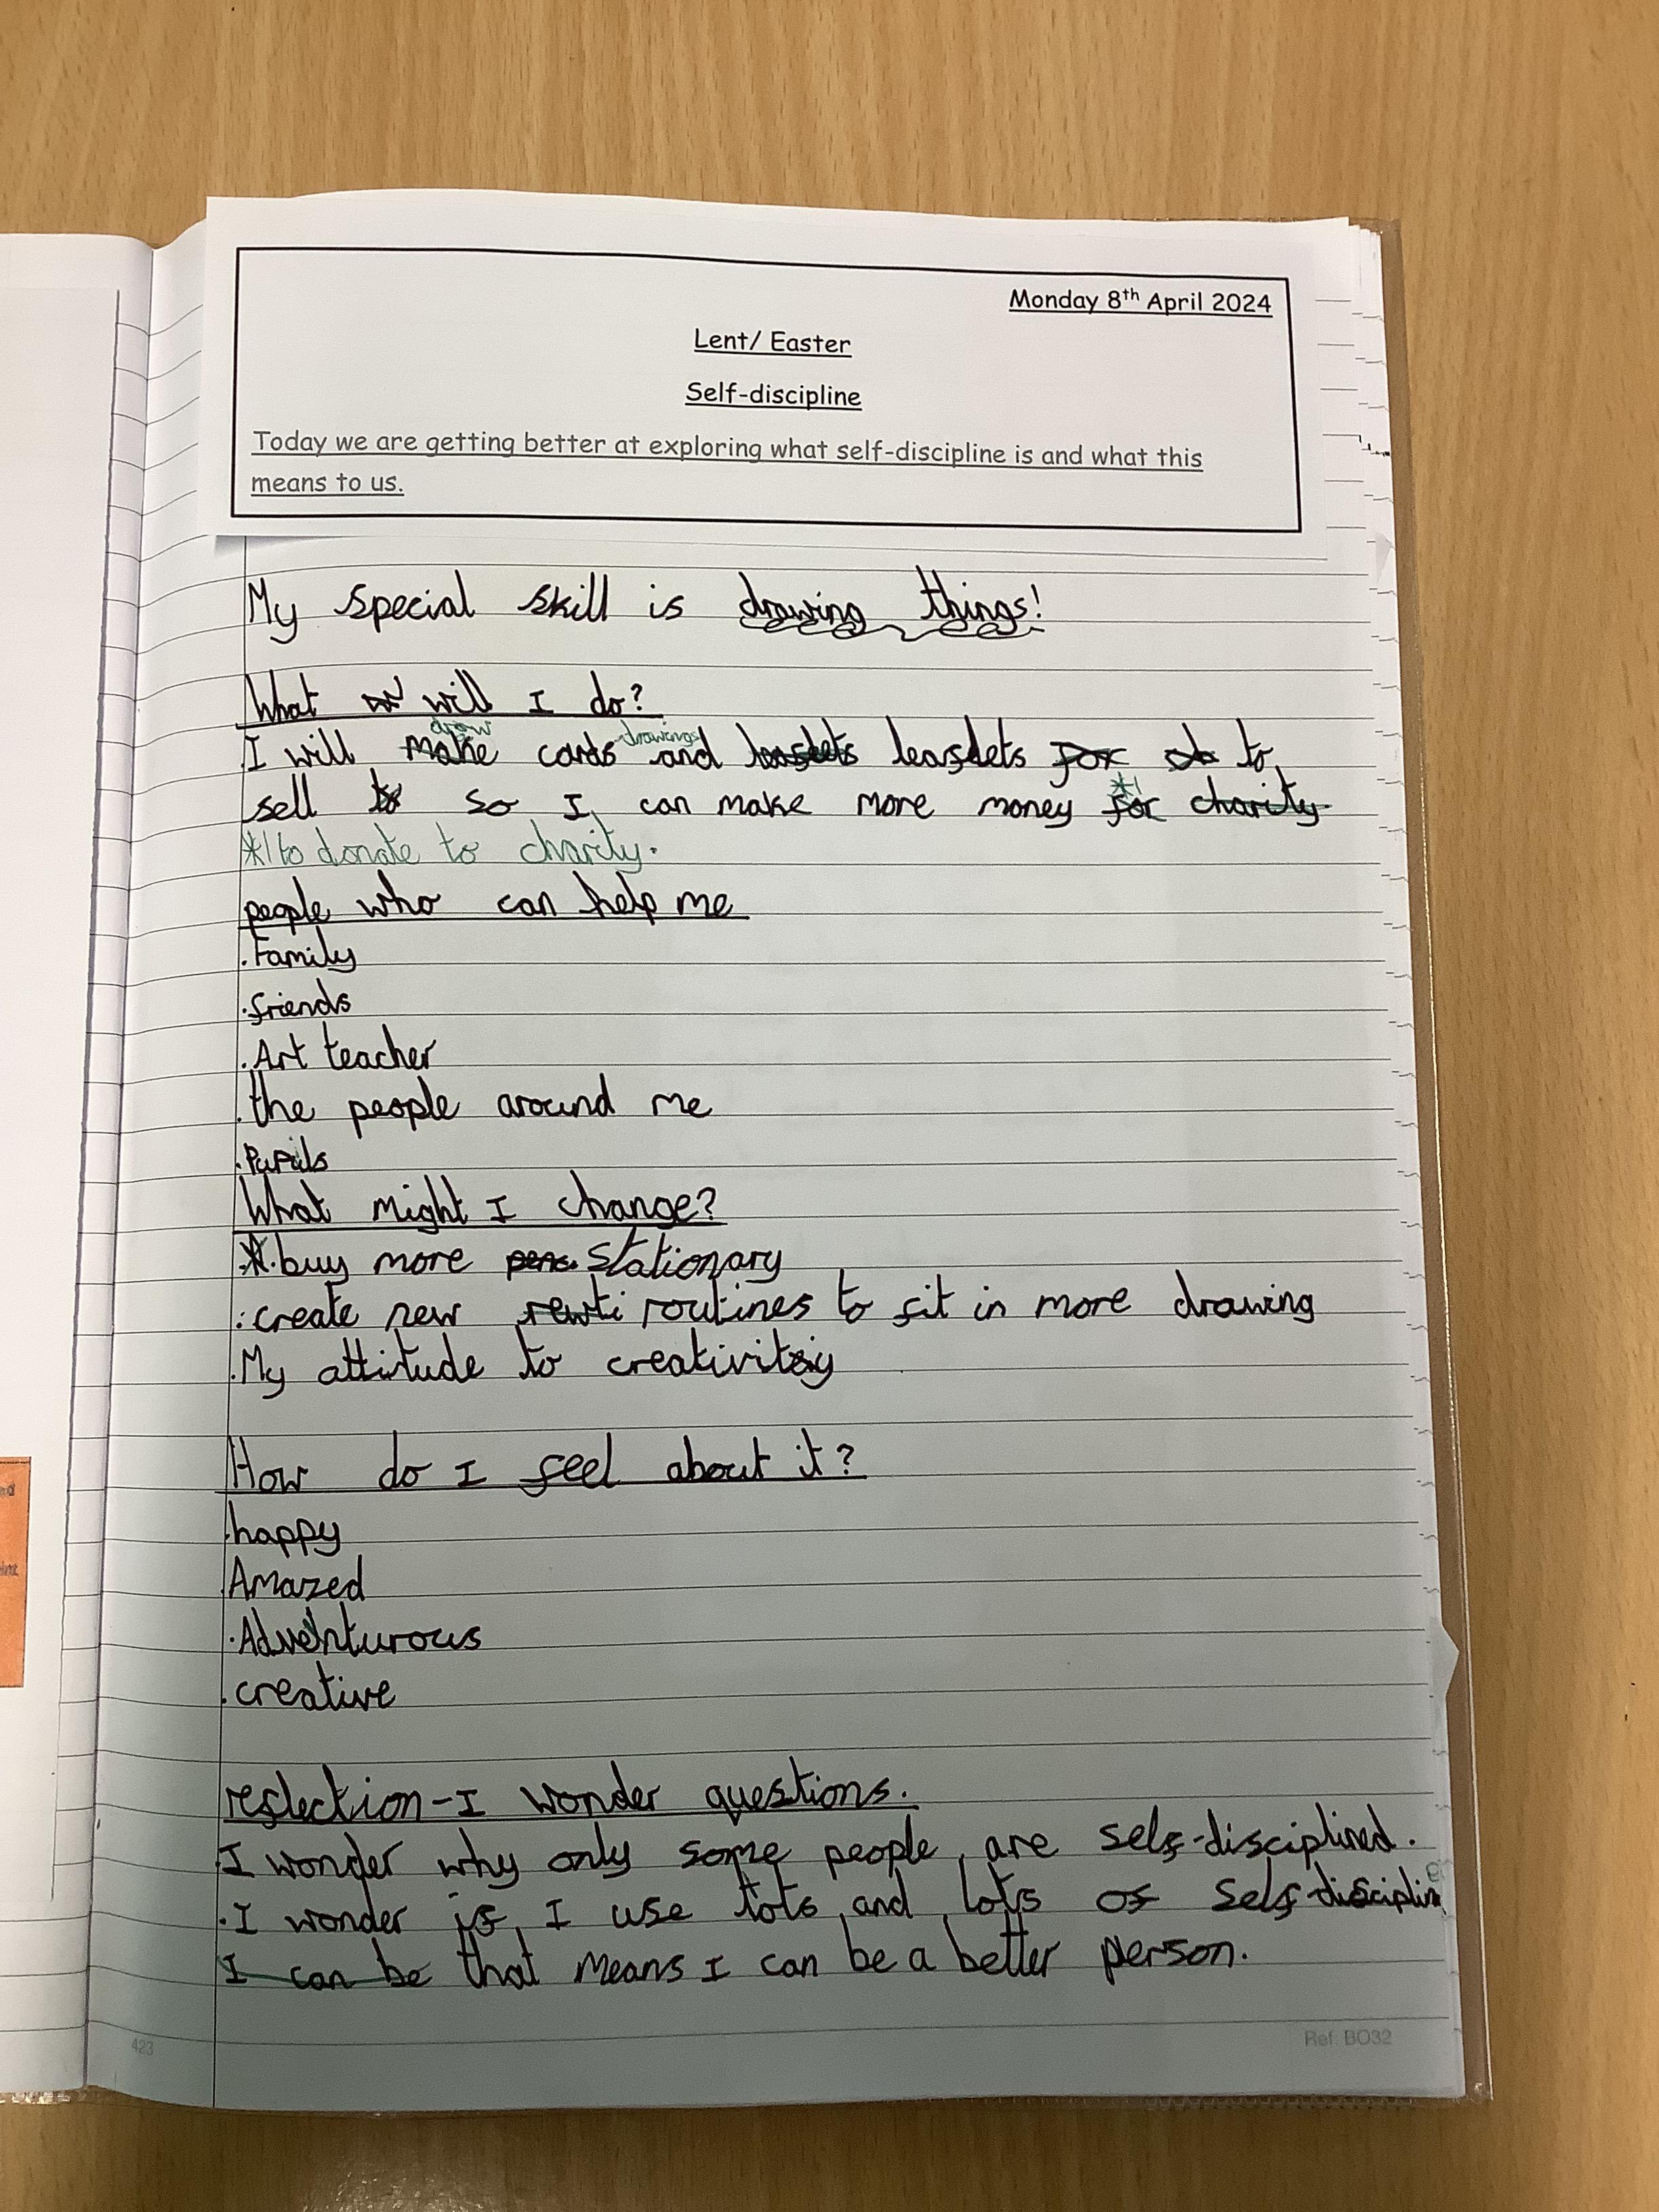 Monday 8th April 2024
Lent/ Easter
Self-discipline
Today we are getting better at exploring what self-discipline is and what this
means to us.
My special skill is drawing things!
What will I do?
draw drawings
I will make cards and leaflets leaflets for to
sell to so I can make more money *1 for charity
*1 to donate to charity.
people who can help me
.Family
.friends
.Art teacher
.the people around me
.Pupils
What might I change?
*.buy more pens. stationary
.create new routines to fit in more drawing
.My attitude to creativity
How do I feel about it?
.happy
Amazed
.Adventurous
.creative
reflection-I wonder questions.
I wonder why only some people are self-disciplined.
.I wonder if I use lots and lots of self-discipline
I can be that means I can be a better person.
423
Ref. BO32